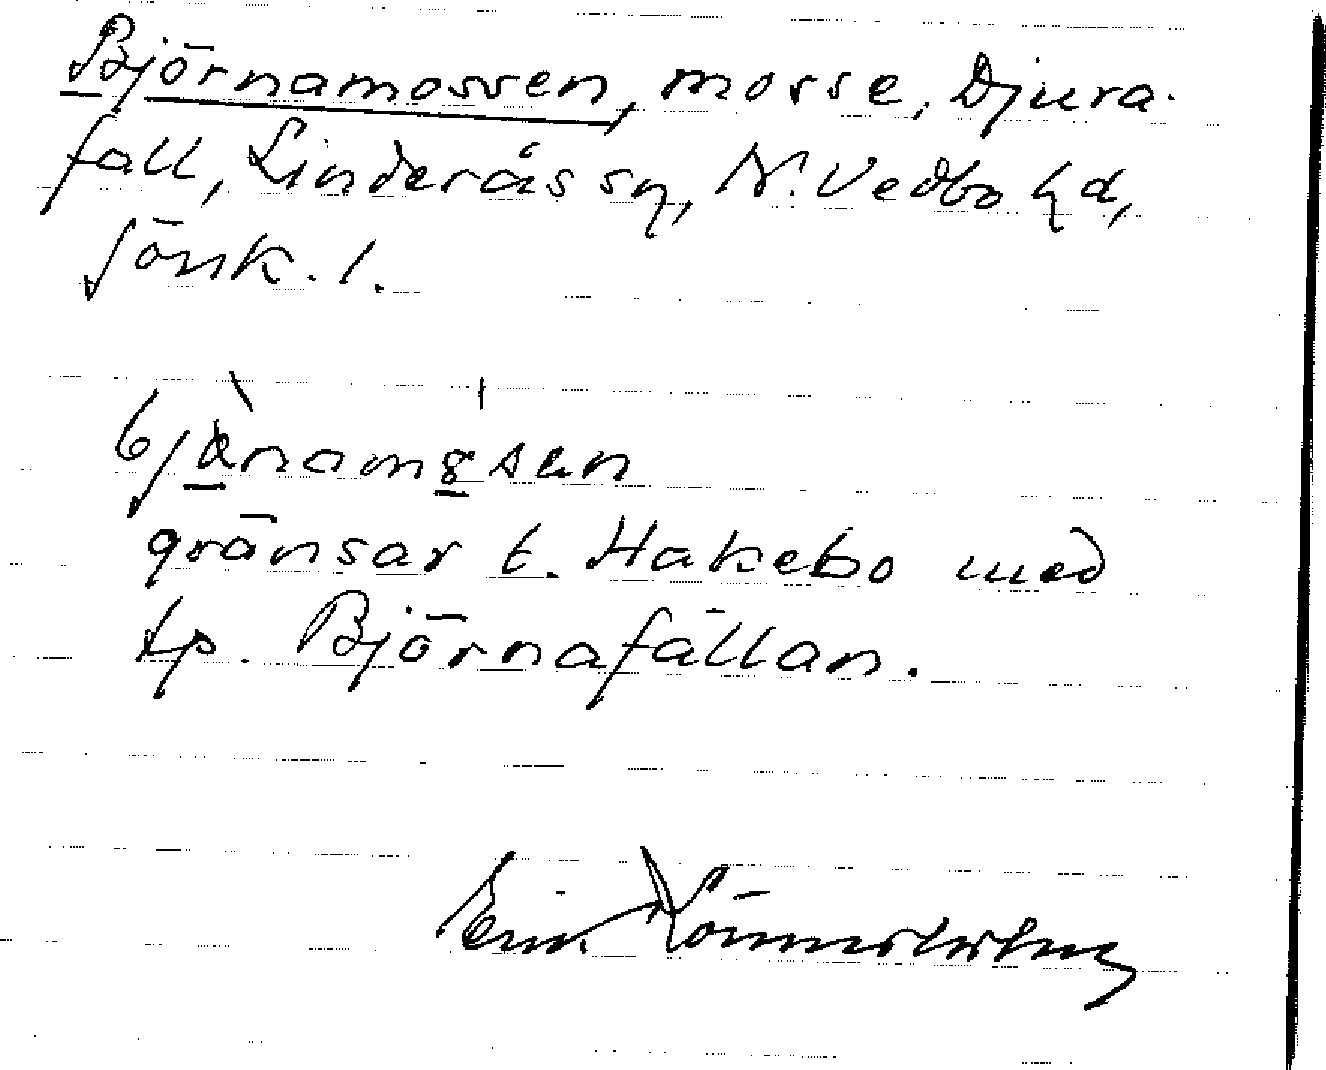 Björnamossen, mosse, Djura-
fall, Linderås sn, N. Vedbo hd,
Jönk. l.
gränsar t. Hakebo med
tp. Björnafällan.
Erik